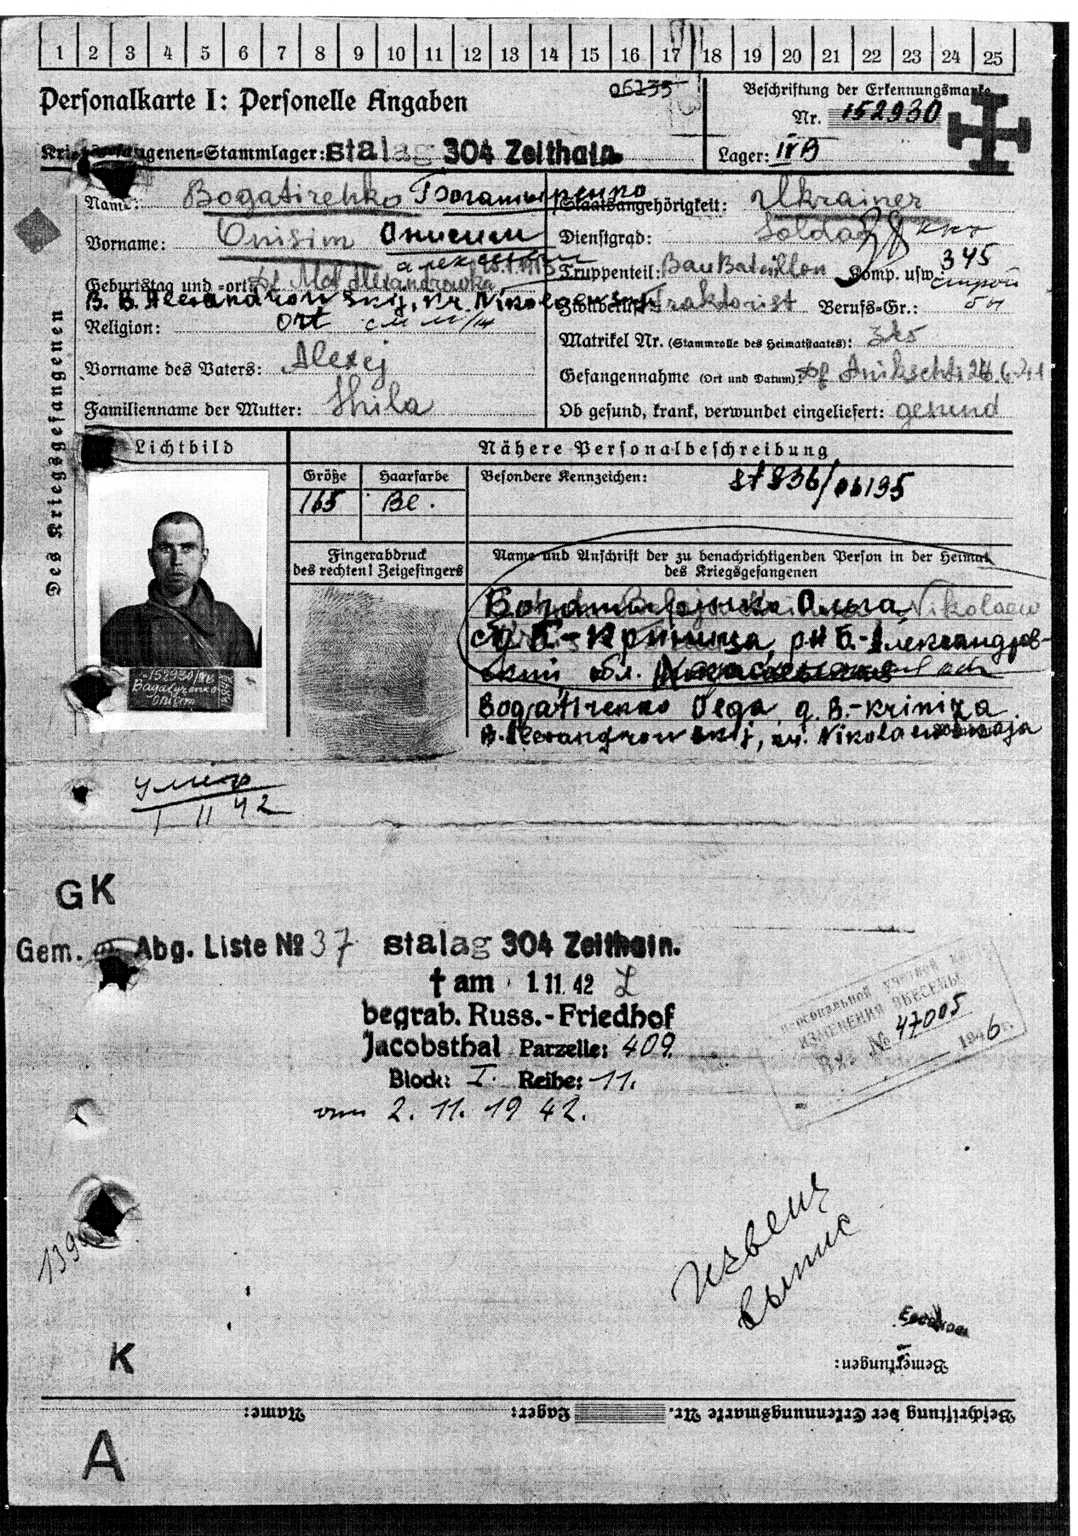 1 2 3 4 5 6 7 8 9 10 11 12 13 14 15 16 17 18 19 20 21 22 23 24 25
Personalkarte I: Personelle Angaben
06235
Beschriftung der Erkennungsmarke
Nr. 152930
Kriegsgefangenen-Stammlager: Stalag 304 Zeithain.
Lager: IVB
Des Kriegsgefangenen
Name: Bogatirehko Богатыренко
Staatsangehörigkeit: Ukrainer
Vorname: Onisim Онисим
Dienstgrad: Soldat
Алексеевич
Truppenteil: BauBataillon Komp. usw. 345
строй
Geburtstag und -ort: Alexandrowka
B. B. Alexandrowskij, Nikolaewskaja
бн
Zivilberuf: Traktorist Berufs-Gr.:
Religion: ort
Matrikel Nr. (Stammrolle des Heimatstaates): 345
Vorname des Vaters: Alexej
Gefangennahme (Ort und Datum): Anikschti, 26.6.41
Familienname der Mutter: Shila
Ob gesund, krank, verwundet eingeliefert: gesund
Lichtbild
Nähere Personalbeschreibung
Größe Haarfarbe Besondere Kennzeichen:
165 Bl.
Fingerabdruck
des rechten! Zeigefingers
Name und Anschrift der zu benachrichtigenden Person in der Heimat
des Kriegsgefangenen
Богатыренко Ольга Nikolaew
Б.-Криница, рн Б.-Александров-
ский, обл.
Bogatirenko Olga, q. B.-kriniza
B. Alexandrowskij, Nikolaewskaja
152930/IVB
Bagatyrenko
Onisim
умер
1 11 42
GK
Gem. Abg. Liste № 37 Stalag 304 Zeithain.
† am 1.11.42
begrab. Russ.-Friedhof
Jacobsthal Parzelle: 409
Block: I. Reihe: 11.
vom 2.11.1942.
персональной
ИЗМЕНЕНИЯ ВНЕСЕНЫ
Вх. № 47005
1946 г.
139
Извещ
выпис
K
Bemerkungen:
Beschriftung der Erkennungsmarke Nr. Lager: Name:
A